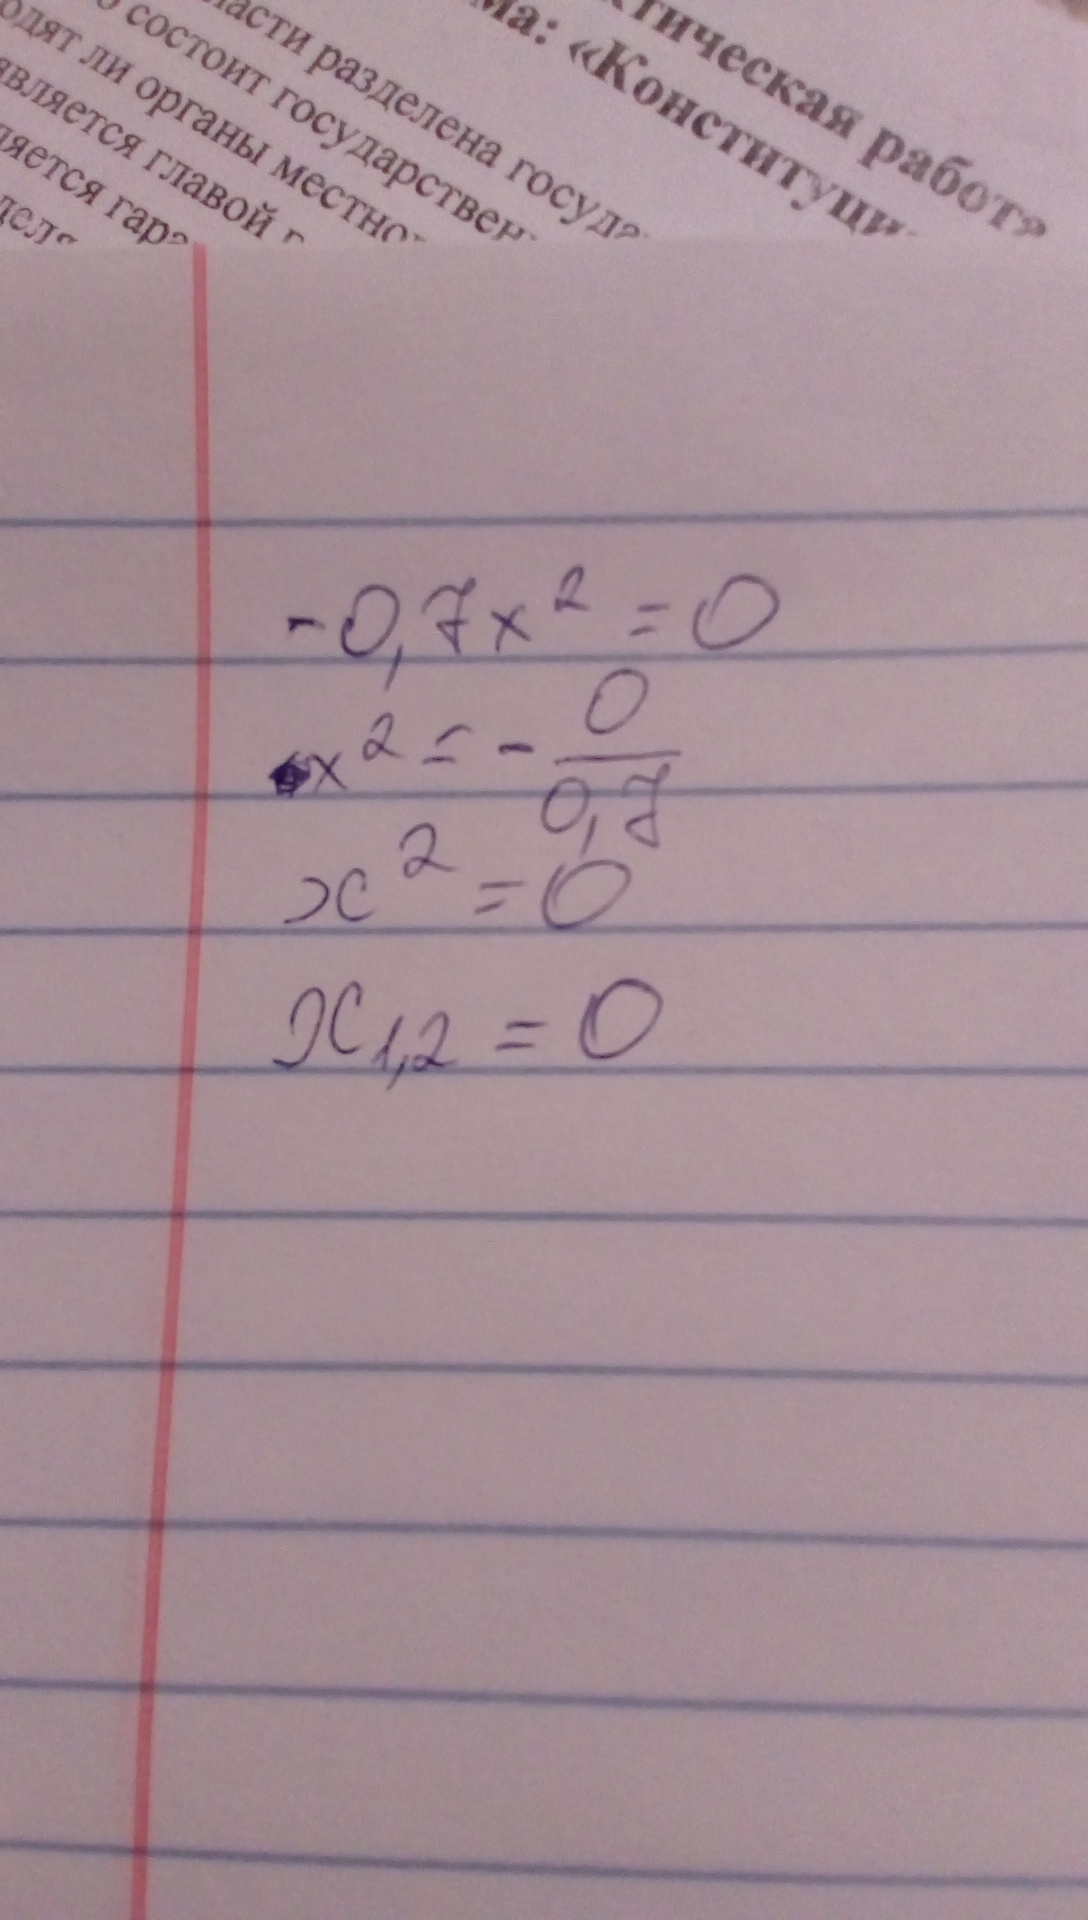 ктическая работа
ма: «Конституци
ласти разделена госуда
о состоит государствен
одят ли органы местно
является главой г
ляется гара
деля
-0,7x² = 0
x² = - 0/0,7
x² = 0
x₁,₂ = 0